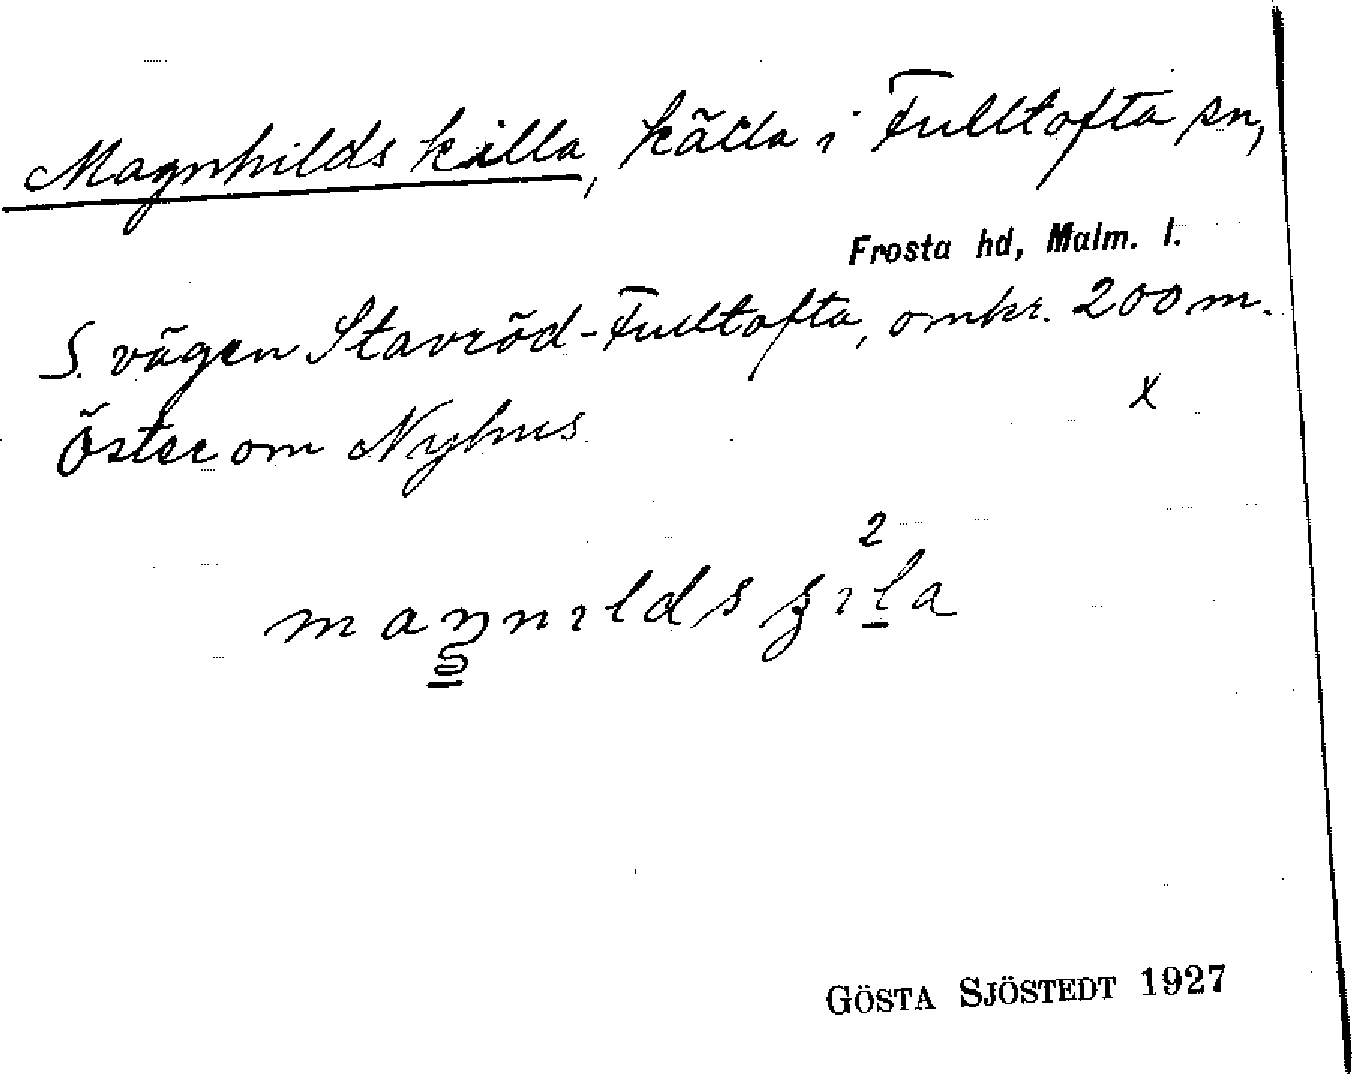 Magnhilds killa, källa i Fulltofta sn,
Frosta hd, Malm. l.
S. vägen Stavröd-Fulltofta, omkr. 200 m.
Öster om Nyhus
x
2
GÖSTA SJÖSTEDT 1927